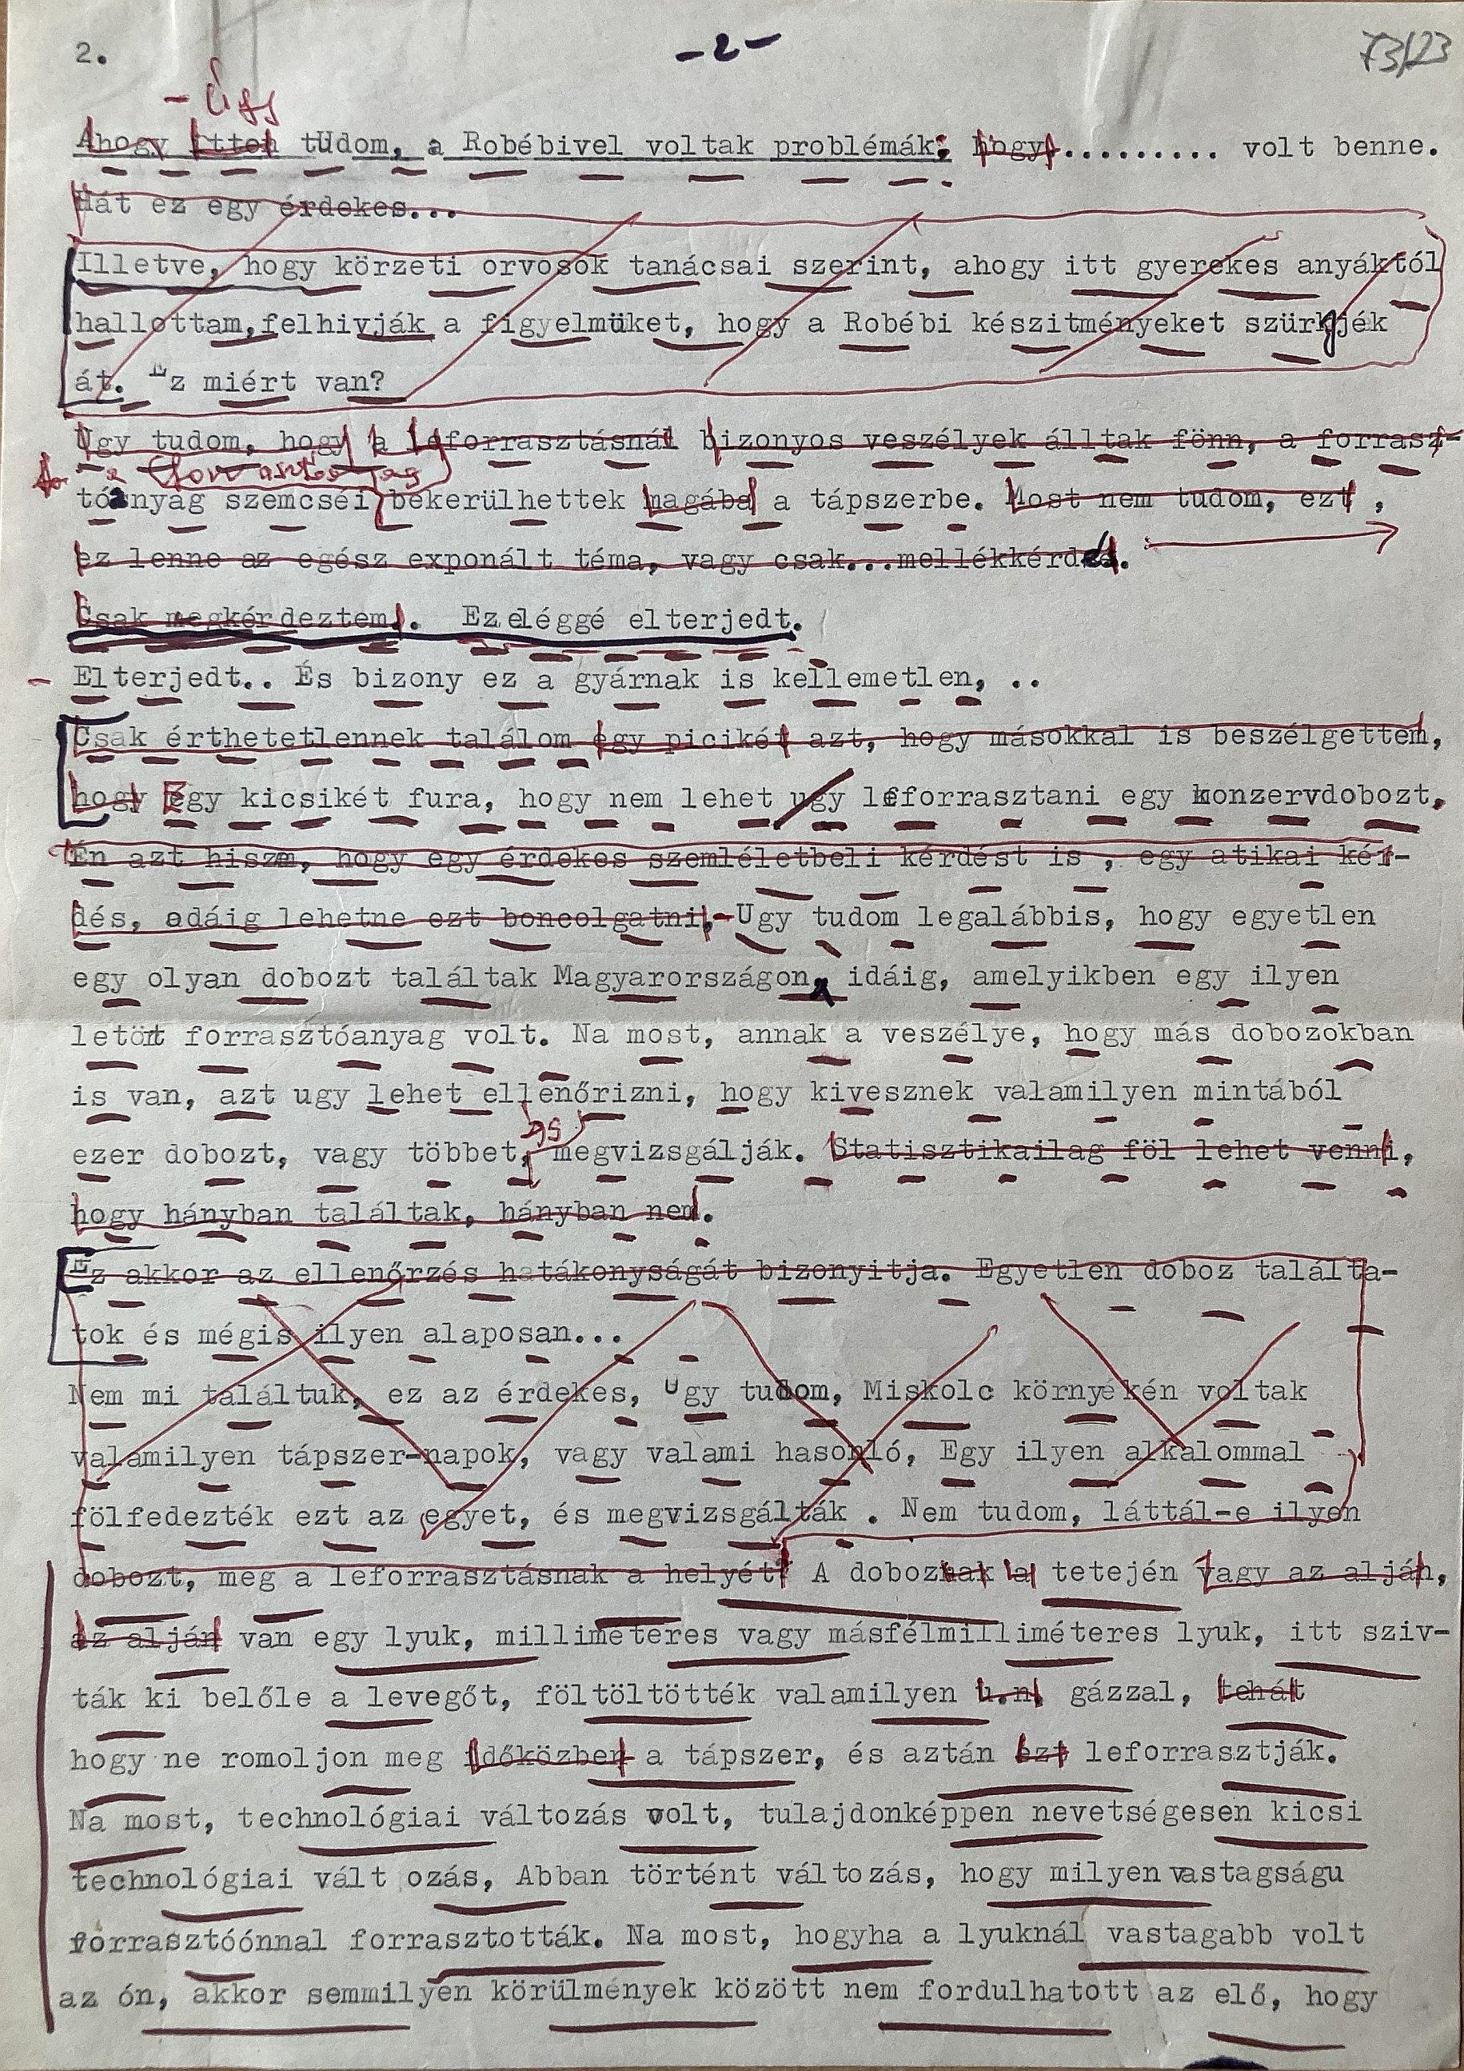 2. -2- 73/23
- Úgy
Ahogy itten tUdom, a Robébivel voltak problémák; hogy.......... volt benne.
Hát ez egy érdekes...
Illetve, hogy körzeti orvosok tanácsai szerint, ahogy itt gyerekes anyáktól
hallottam,felhivják a figyelmüket, hogy a Robébi készitményeket szürjék
át. Ez miért van?
Ugy tudom, hogy a leforrasztásnál bizonyos veszélyek álltak fönn, a forrasz-
a forrasztóanyag
tóanyag szemcséi bekerülhettek magába a tápszerbe. Most nem tudom, ezt ,
ez lenne az egész exponált téma, vagy csak...mellékkérdés.
Csak megkérdeztem. Ez eléggé elterjedt.
- Elterjedt.. És bizony ez a gyárnak is kellemetlen, ..
Csak érthetetlennek találom egy picikét azt, hogy másokkal is beszélgettem,
hogy Egy kicsikét fura, hogy nem lehet ugy leforrasztani egy konzervdobozt,
Én azt hiszm, hogy egy érdekes szemléletbeli kérdést is , egy atikai kér-
dés, odáig lehetne ezt boncolgatni.-Ugy tudom legalábbis, hogy egyetlen
egy olyan dobozt találtak Magyarországon, idáig, amelyikben egy ilyen
letört forrasztóanyag volt. Na most, annak a veszélye, hogy más dobozokban
is van, azt ugy lehet ellenőrizni, hogy kivesznek valamilyen mintából
és
ezer dobozt, vagy többet, megvizsgálják. Statisztikailag föl lehet venni,
hogy hányban találtak, hányban nem.
Ez akkor az ellenőrzés hatákonyságát bizonyitja. Egyetlen doboz találta-
tok és mégis ilyen alaposan...
Nem mi találtuk, ez az érdekes, Ugy tudom, Miskolc környékén voltak
valamilyen tápszer-napok, vagy valami hasonló, Egy ilyen alkalommal
fölfedezték ezt az egyet, és megvizsgálták . Nem tudom, láttál-e ilyen
dobozt, meg a leforrasztásnak a helyét? A doboznak a tetején vagy az alján,
az alján van egy lyuk, milliméteres vagy másfélmilliméteres lyuk, itt sziv-
ták ki belőle a levegőt, föltöltötték valamilyen u.n. gázzal, tehát
hogy ne romoljon meg időközben a tápszer, és aztán ezt leforrasztják.
Na most, technológiai változás volt, tulajdonképpen nevetségesen kicsi
technológiai vált ozás, Abban történt változás, hogy milyen vastagságu
forrasztóónnal forrasztották. Na most, hogyha a lyuknál vastagabb volt
az ón, akkor semmilyen körülmények között nem fordulhatott az elő, hogy